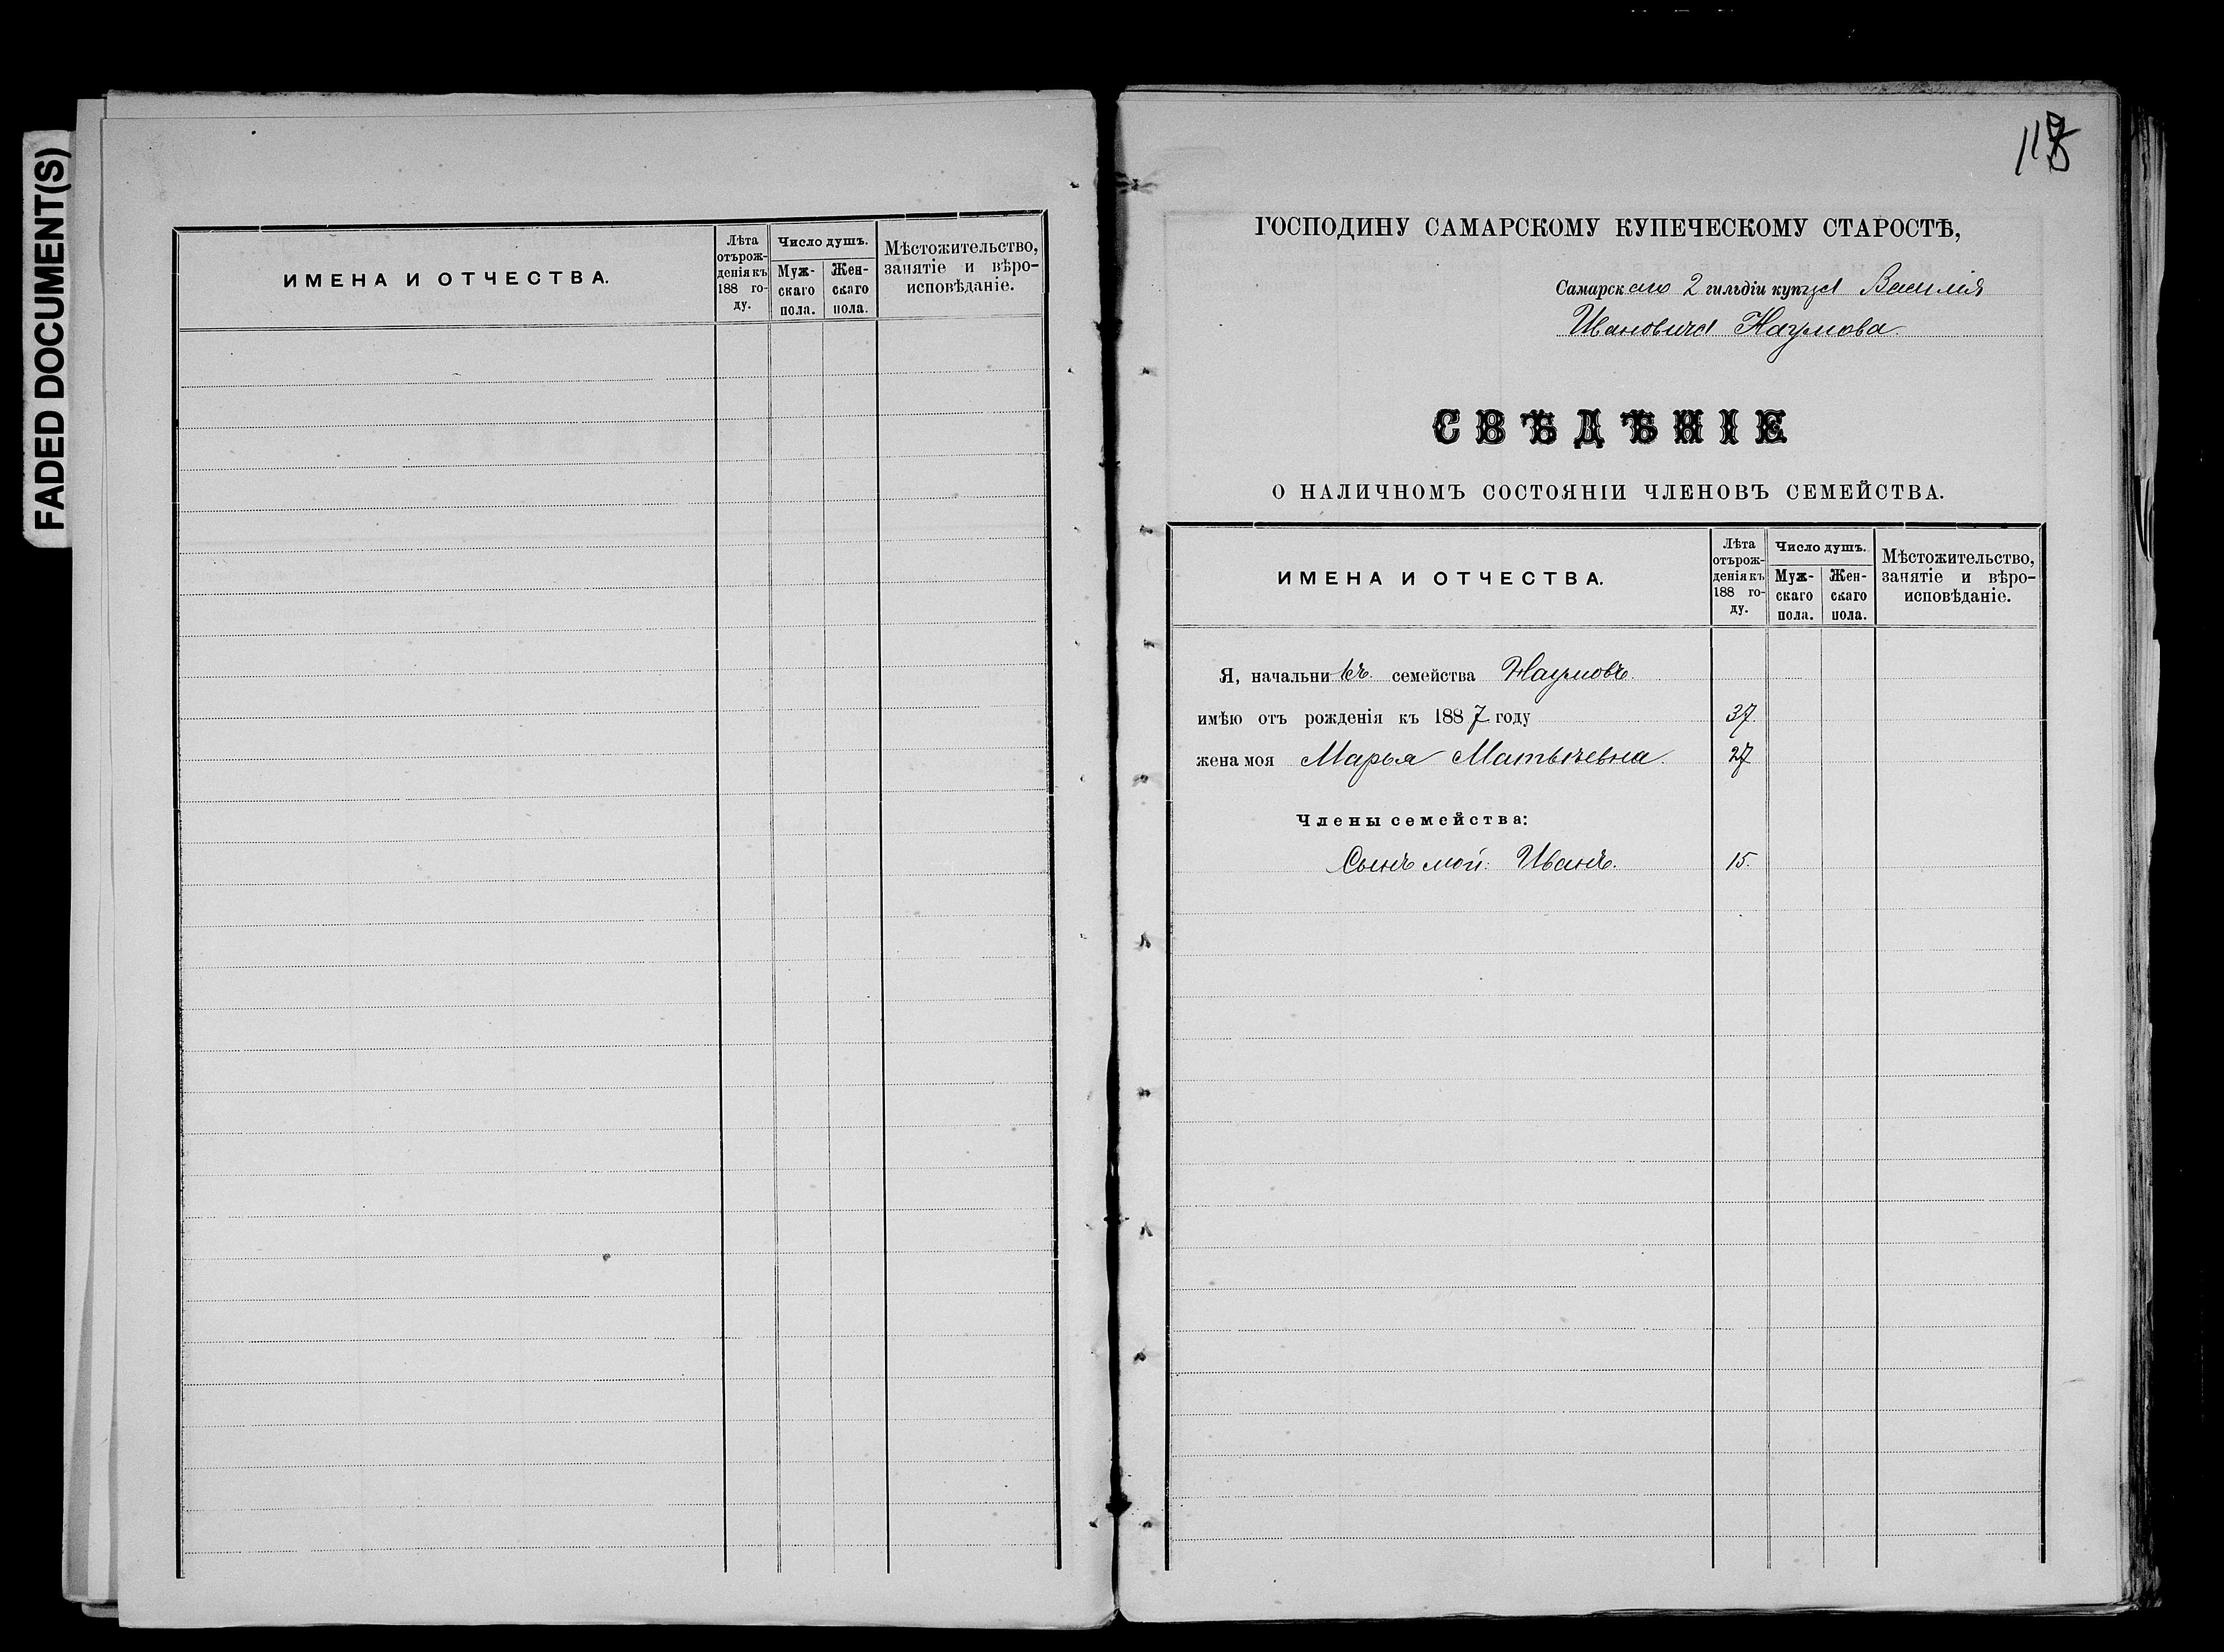 FADED DOCUMENT(S)
ИМЕНА И ОТЧЕСТВА.
Лѣта
отърож-
денія къ
188 го-
ду.
Число душъ.
Муж-
скаго
пола.
Жен-
скаго
пола.
Мѣстожительство,
занятіе и вѣро-
исповѣданіе.
ГОСПОДИНУ САМАРСКОМУ КУПЕЧЕСКОМУ СТАРОСТѢ,
Самарскаго 2 гильдіи купца Василія
Ивановича Наумова.
СВѢДѢНІЕ
О НАЛИЧНОМЪ СОСТОЯНІИ ЧЛЕНОВЪ СЕМЕЙСТВА.
ИМЕНА И ОТЧЕСТВА.
Лѣта
отърож-
денія къ
188 го-
ду.
Число душъ.
Муж-
скаго
пола.
Жен-
скаго
пола.
Мѣстожительство,
занятіе и вѣро-
исповѣданіе.
Я, начальникъ семейства Наумовъ.
имѣю отъ рожденія къ 1887 году 37.
жена моя Марья Матвѣевна. 27
Члены семейства:
Сынъ мой: Иванъ. 15.